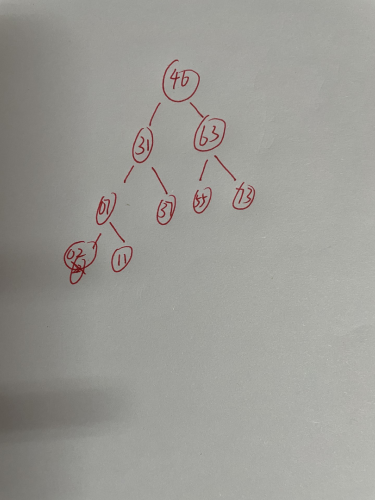 46
31 63
07 37 55 73
02 11